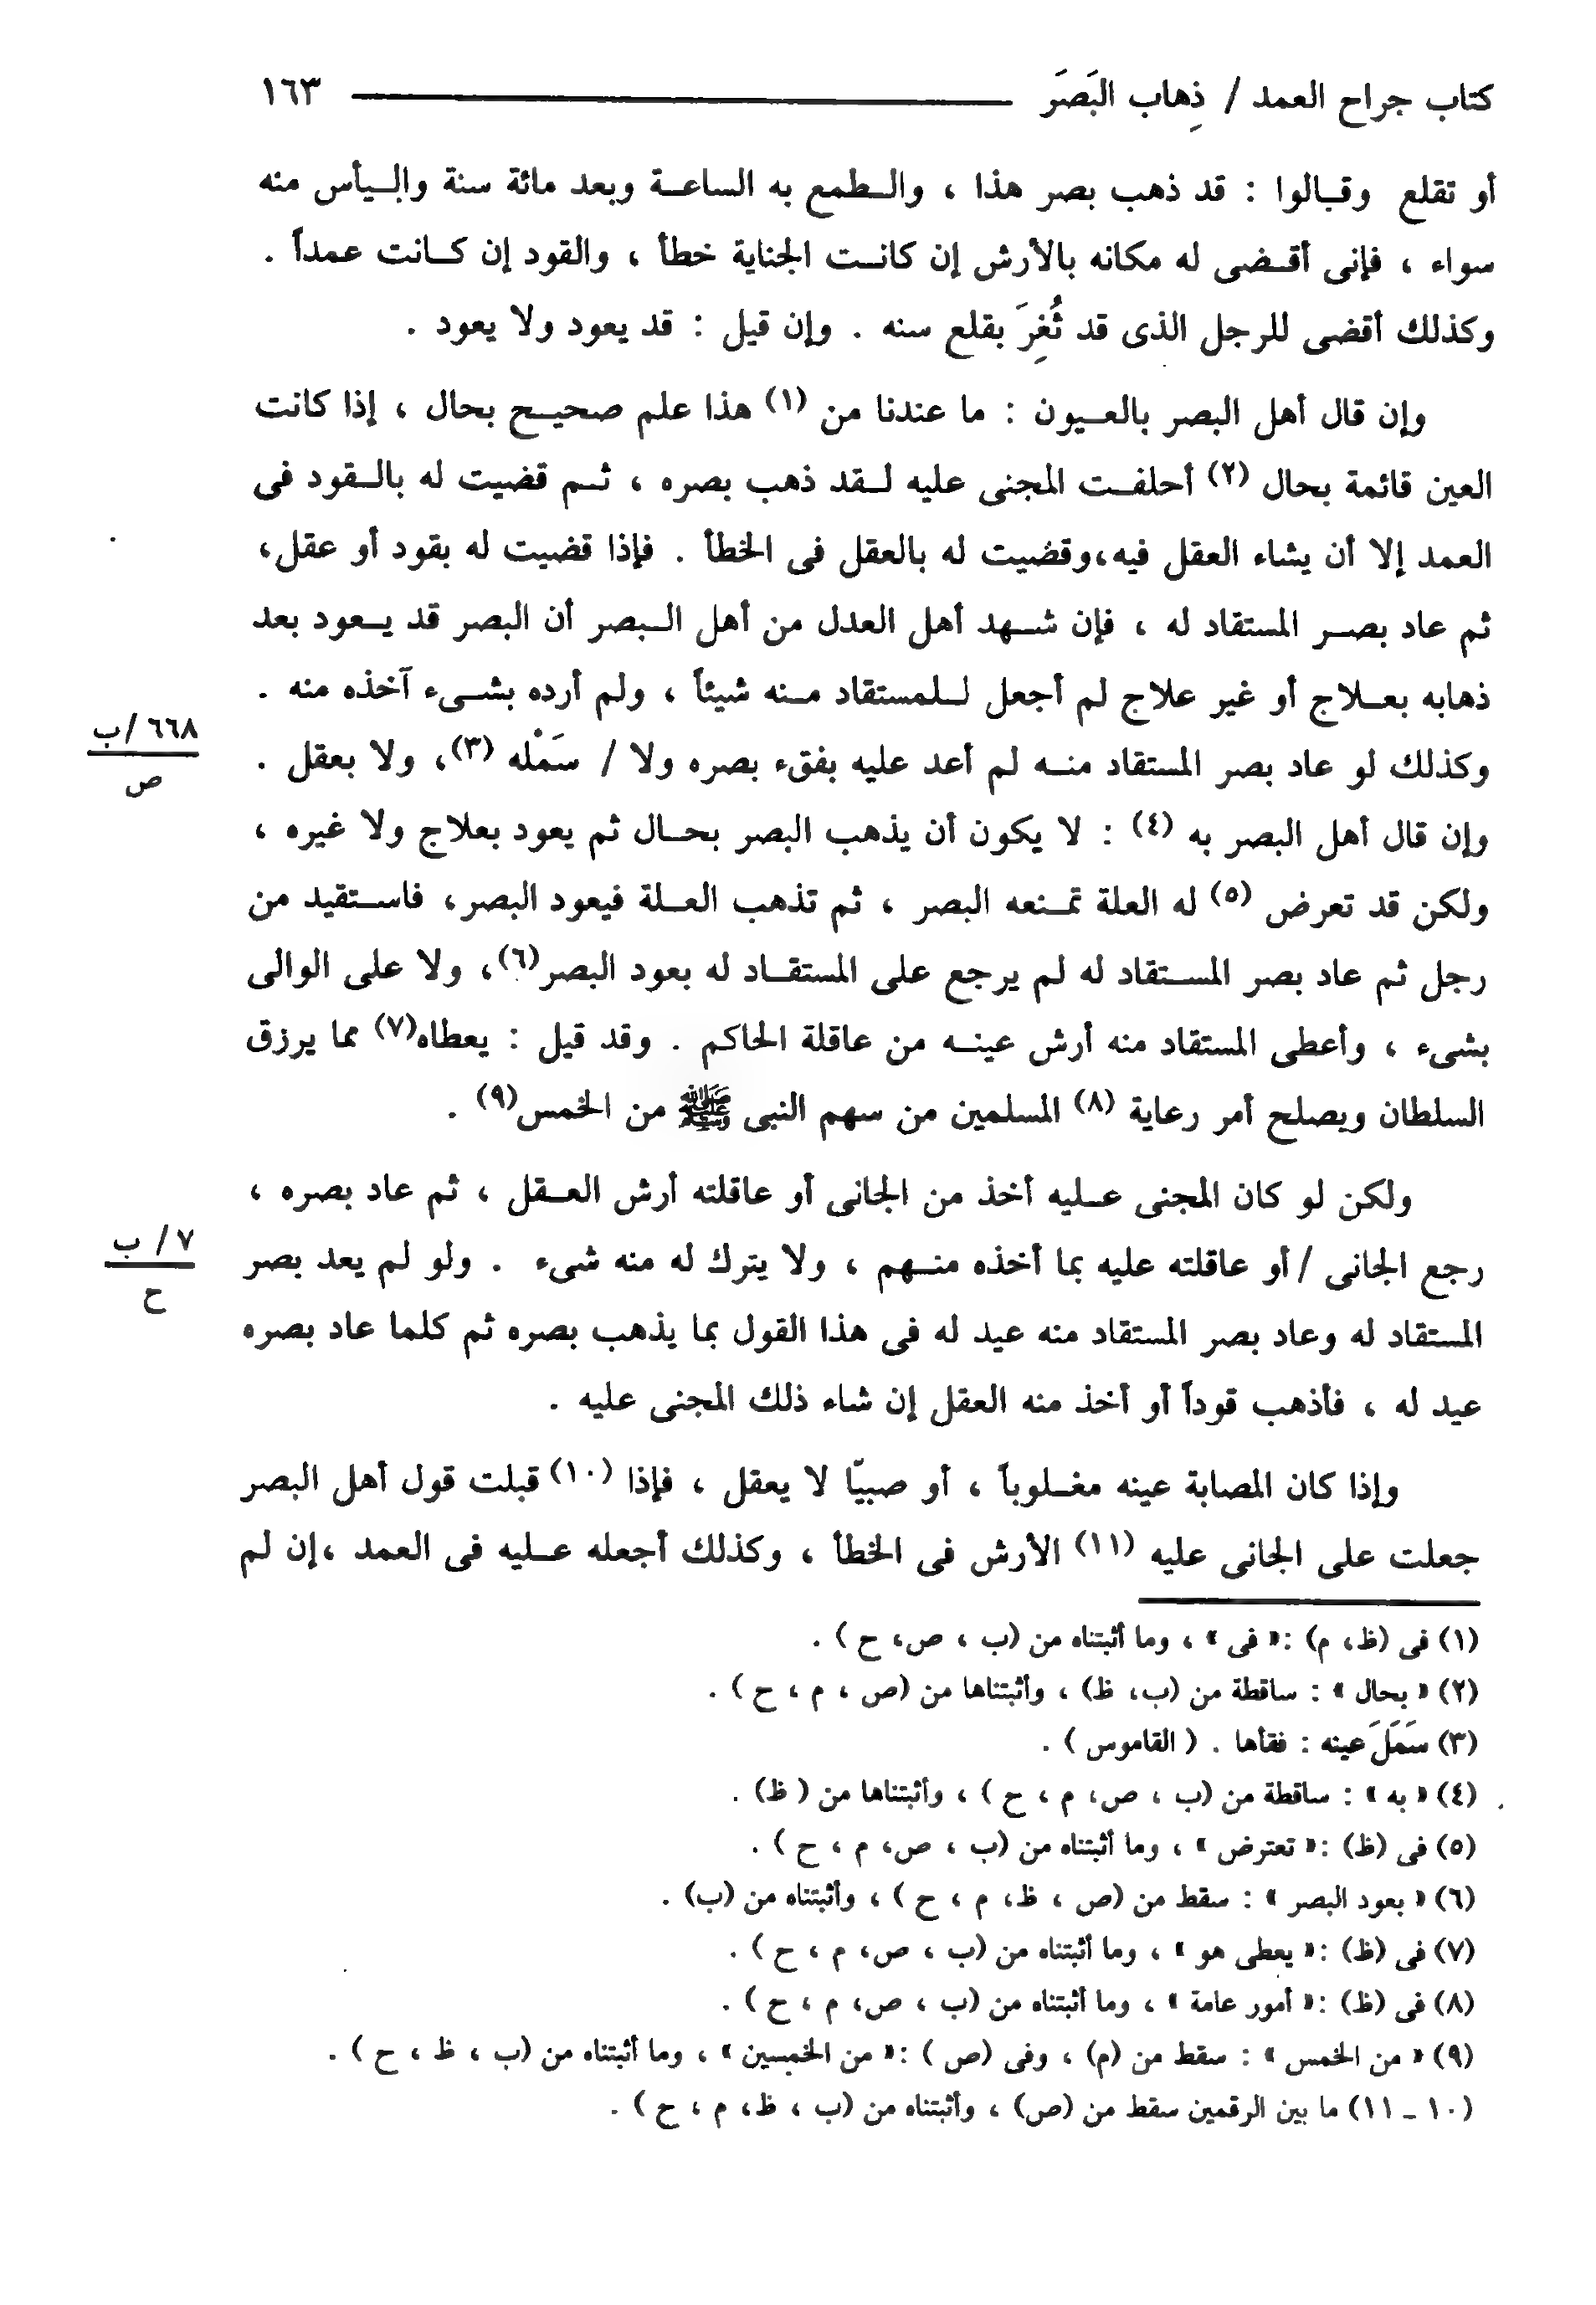 كتاب جراح العمد / ذِهاب البَصَر ١٦٣
أو تقلع وقالوا : قد ذهب بصر هذا ، والطمع به الساعة وبعد مائة سنة واليأس منه
سواء ، فإنى أقضى له مكانه بالأرش إن كانت الجناية خطأ ، والقود إن كانت عمداً .
وكذلك أقضى للرجل الذى قد ثُغِرَ بقلع سنه . وإن قيل : قد يعود ولا يعود .
وإن قال أهل البصر بالعيون : ما عندنا من (١) هذا علم صحيح بحال ، إذا كانت
العين قائمة بحال (٢) أحلفت المجنى عليه لقد ذهب بصره ، ثم قضيت له بالقود فى
العمد إلا أن يشاء العقل فيه،وقضيت له بالعقل فى الخطأ . فإذا قضيت له بقود أو عقل،
ثم عاد بصر المستقاد له ، فإن شهد أهل العدل من أهل البصر أن البصر قد يعود بعد
ذهابه بعلاج أو غير علاج لم أجعل للمستقاد منه شيئاً ، ولم أرده بشىء آخذه منه .
٦٦٨/ب
ص
وكذلك لو عاد بصر المستقاد منه لم أعد عليه بفقء بصره ولا / سَمْله (٣)، ولا بعقل .
وإن قال أهل البصر به (٤) : لا يكون أن يذهب البصر بحال ثم يعود بعلاج ولا غيره ،
ولكن قد تعرض (٥) له العلة تمنعه البصر ، ثم تذهب العلة فيعود البصر، فاستقيد من
رجل ثم عاد بصر المستقاد له لم يرجع على المستقاد له بعود البصر(٦)، ولا على الوالى
بشىء ، وأعطى المستقاد منه أرش عينه من عاقلة الحاكم . وقد قيل : يعطاه(٧) مما يرزق
السلطان ويصلح أمر رعاية (٨) المسلمين من سهم النبى ﷺ من الخمس(٩) .
ولكن لو كان المجنى عليه أخذ من الجانى أو عاقلته أرش العقل ، ثم عاد بصره ،
٧/ ب
ح
رجع الجانى /أو عاقلته عليه بما أخذه منهم ، ولا يترك له منه شىء . ولو لم يعد بصر
المستقاد له وعاد بصر المستقاد منه عيد له فى هذا القول بما يذهب بصره ثم كلما عاد بصره
عيد له ، فأذهب قوداً أو أخذ منه العقل إن شاء ذلك المجنى عليه .
وإذا كان المصابة عينه مغلوباً ، أو صبيّا لا يعقل ، فإذا (١٠) قبلت قول أهل البصر
جعلت على الجانى عليه (١١) الأرش فى الخطأ ، وكذلك أجعله عليه فى العمد ،إن لم
(١) فى (ظ، م) :« فى » ، وما أثبتناه من (ب ، ص، ح ) .
(٢) « بحال » : ساقطة من (ب، ظ) ، وأثبتناها من (ص ، م ، ح ) .
(٣) سَمَلَ عينه : فقأها . ( القاموس ) .
(٤) « به » : ساقطة من (ب ، ص، م ، ح ) ، وأثبتناها من ( ظ) .
(٥) فى (ظ) :« تعترض » ، وما أثبتناه من (ب ، ص، م ، ح ) .
(٦) « بعود البصر » : سقط من (ص ، ظ، م ، ح ) ، وأثبتناه من (ب) .
(٧) فى (ظ) :« يعطى هو » ، وما أثبتناه من (ب ، ص، م ، ح ) .
(٨) فى (ظ) :« أمور عامة » ، وما أثبتناه من (ب ، ص، م ، ح ) .
(٩) « من الخمس » : سقط من (م) ، وفى (ص ) :« من الخمسين » ، وما أثبتناه من (ب ، ظ ، ح ) .
(١٠ ـ ١١) ما بين الرقمين سقط من (ص) ، وأثبتناه من (ب ، ظ، م ، ح ) .